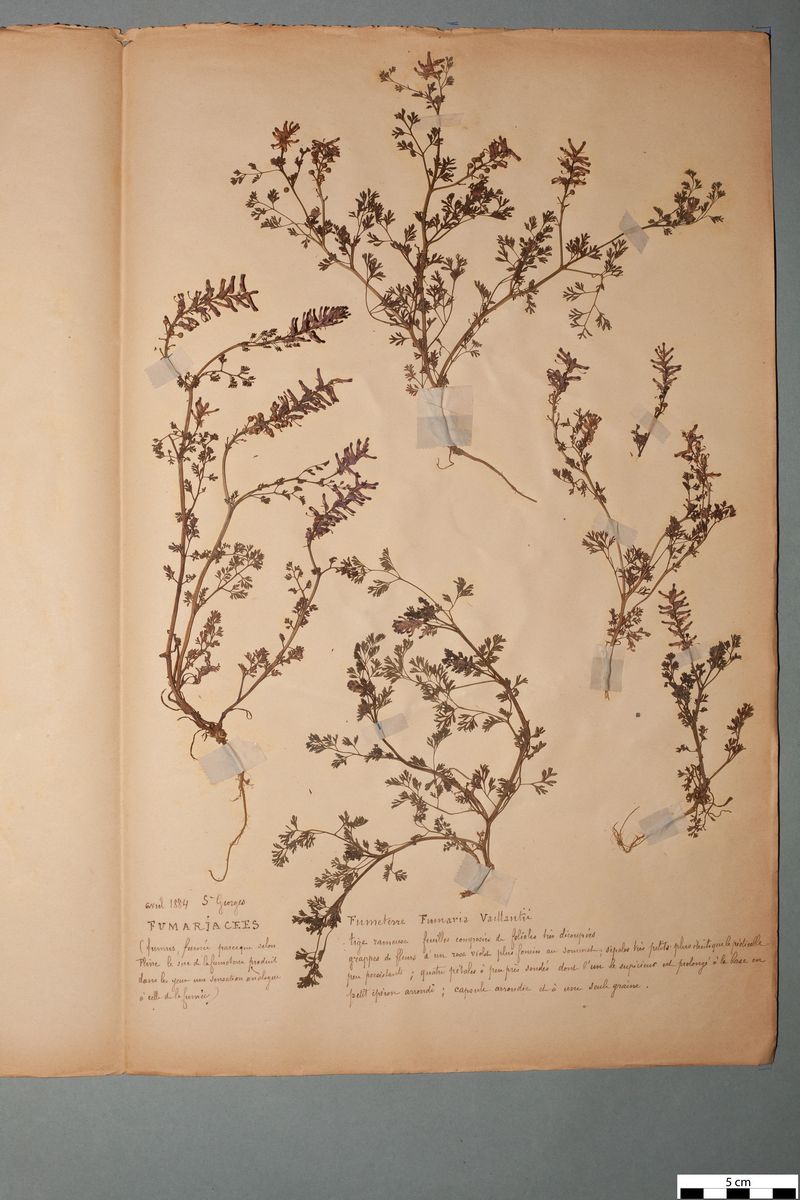 avril 1884 St Georges
FUMARIACEES
(fumus, fumée parceque selon
Pline le suc de la fumeterre produit
dans les yeux une sensation analogue
à celle de la fumée)
Fumeterre Fumaria Vaillantii
tige rameuse feuilles composées de folioles très découpées
grappes de fleurs d'un rose violet plus foncées au sommet, sépales très petits plus étroits que le pédicelle
peu persistants ; quatre pétales à peu près soudés dont l'un le supérieur est prolongé à la base en
petit éperon arrondi ; capsule arrondie et à une seule graine.
5 cm